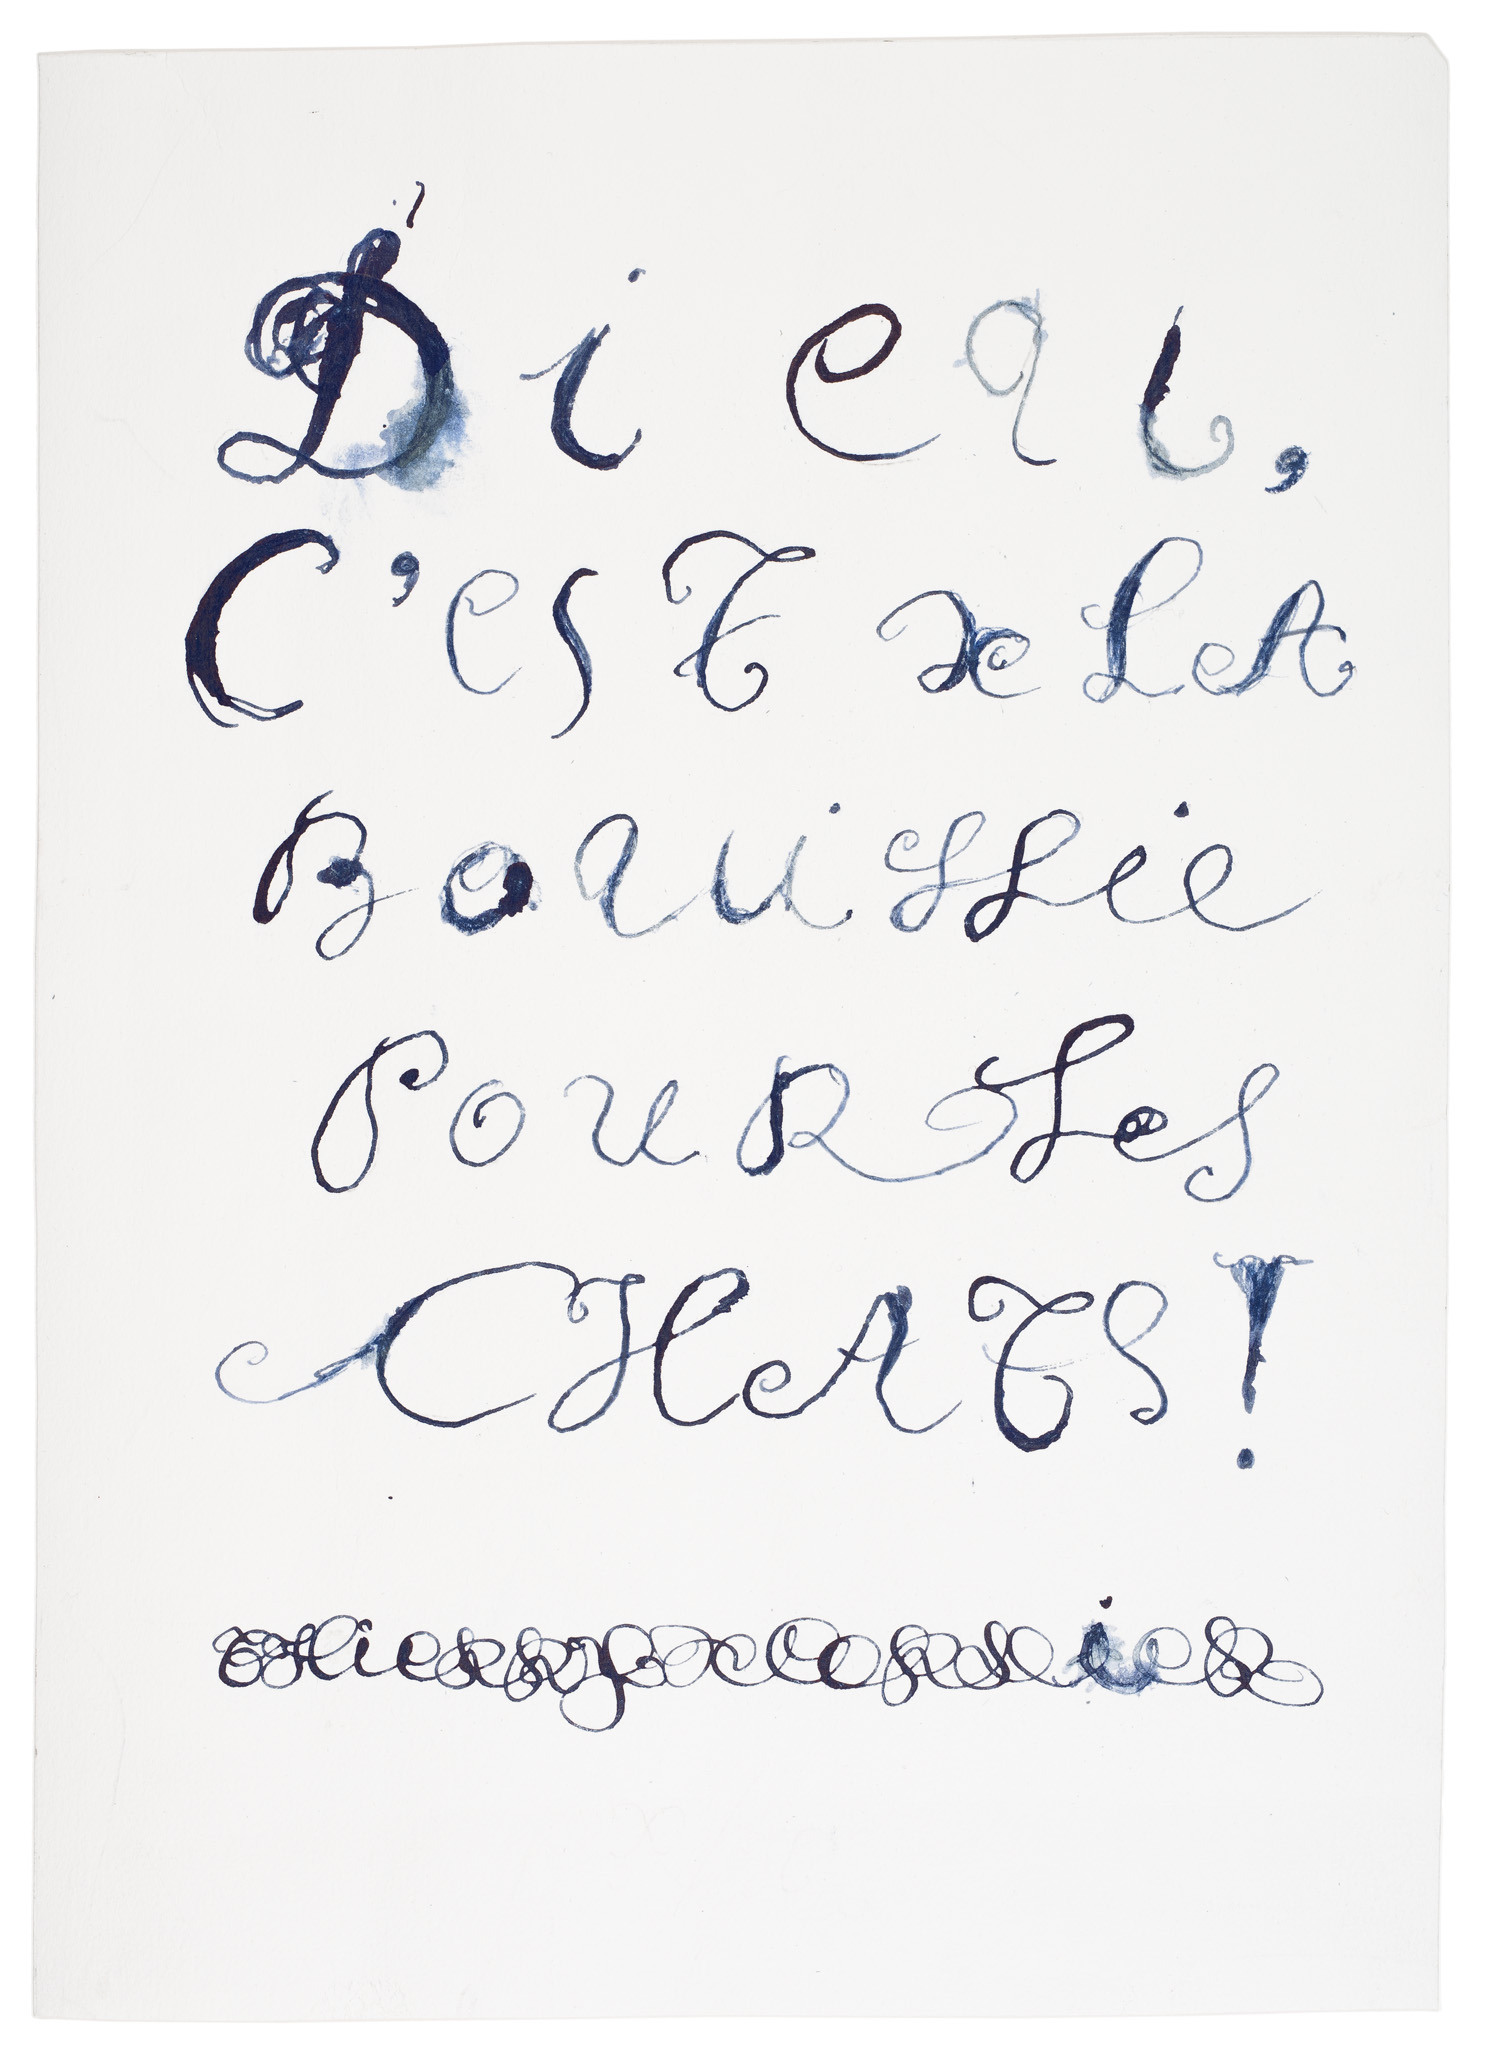 Dieu,
C'esT De LA
BouiLLie
PouR Les
CHATS!
THieRRy De CoRDieR